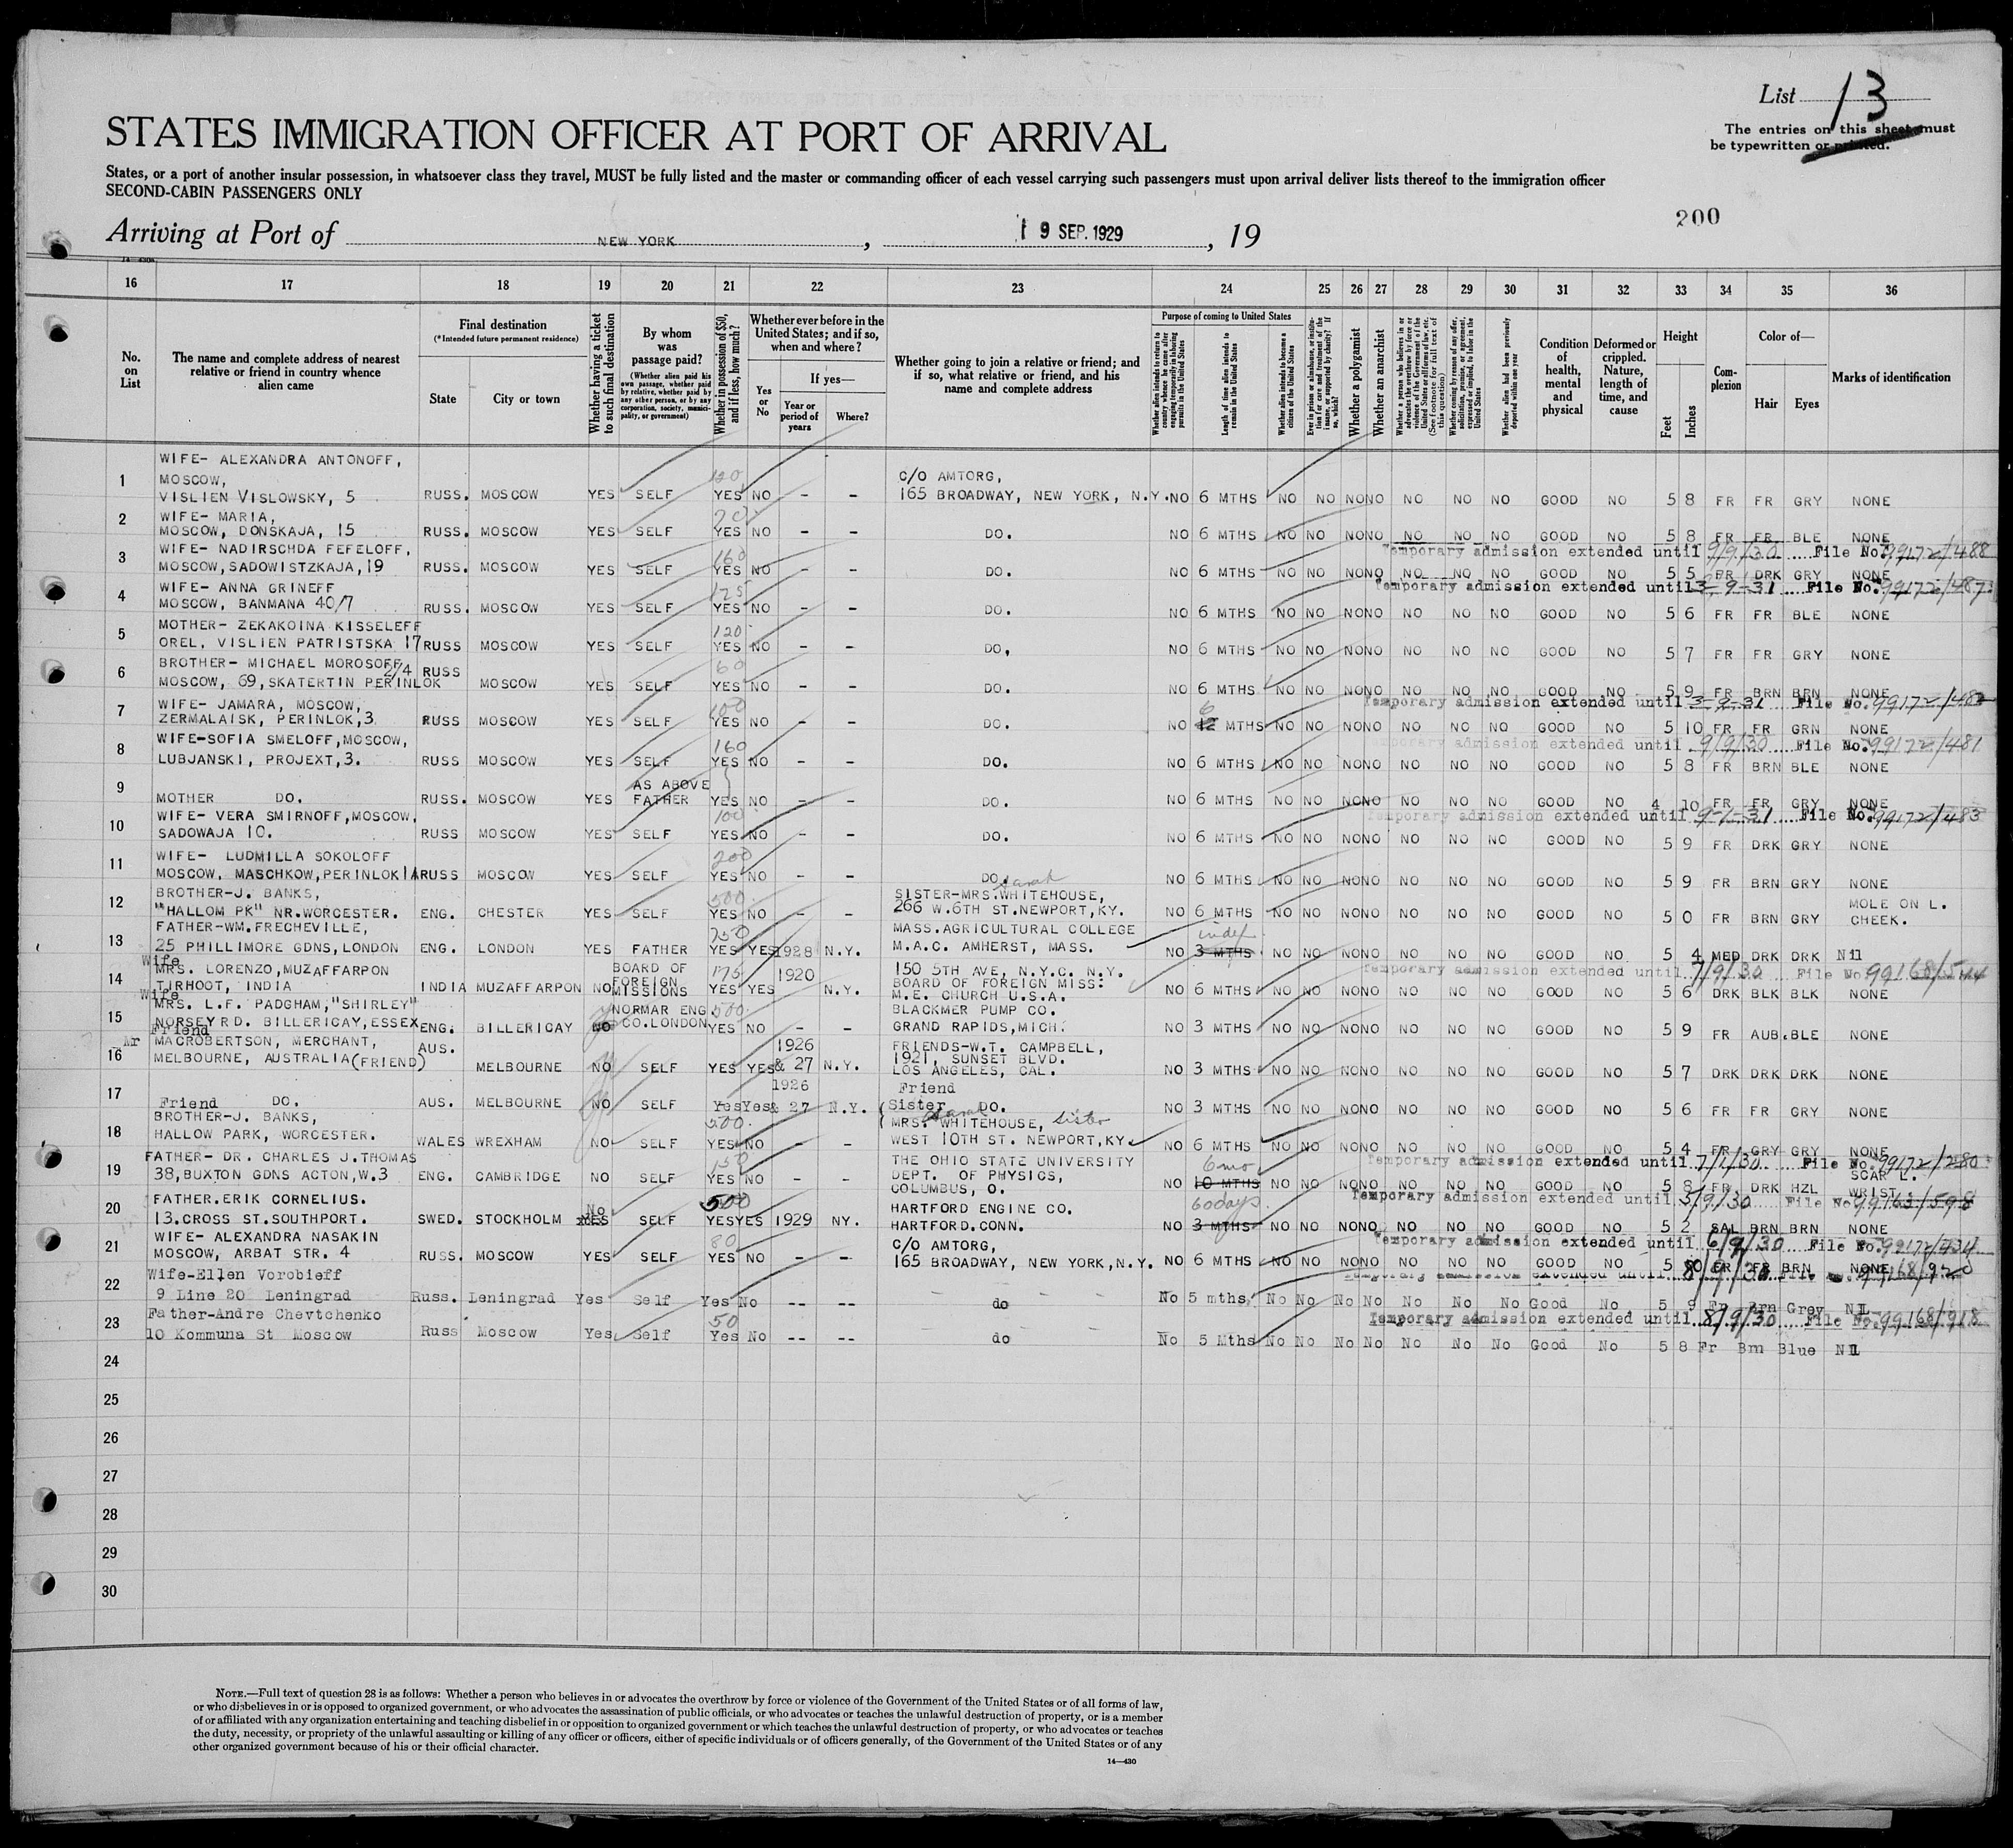 List 13
The entries on this sheet must
be typewritten or printed.
STATES IMMIGRATION OFFICER AT PORT OF ARRIVAL
States, or a port of another insular possession, in whatsoever class they travel, MUST be fully listed and the master or commanding officer of each vessel carrying such passengers must upon arrival deliver lists thereof to the immigration officer
SECOND-CABIN PASSENGERS ONLY
200
Arriving at Port of NEW YORK, 19 SEP. 1929, 19
16 17 18 19 20 21 22 23 24 25 26 27 28 29 30 31 32 33 34 35 36
No. on List
The name and complete address of nearest relative or friend in country whence alien came
Final destination
(*Intended future permanent residence)
State City or town
Whether having a ticket to such final destination
By whom was passage paid?
(Whether alien paid his own passage, whether paid by relative, whether paid by any other person, or by any corporation, society, municipality, or government)
Whether in possession of $50, and if less, how much?
Whether ever before in the United States; and if so, when and where?
Yes or No
If yes—
Year or period of years
Where?
Whether going to join a relative or friend; and if so, what relative or friend, and his name and complete address
Purpose of coming to United States
Whether alien intends to return to country whence he came after engaging temporarily in laboring pursuits in the United States
Length of time alien intends to remain in the United States
Whether alien intends to become a citizen of the United States
Ever in prison or almshouse, or institution for care and treatment of the insane, or supported by charity? If so, which?
Whether a polygamist
Whether an anarchist
Whether a person who believes in or advocates the overthrow by force or violence of the Government of the United States or all forms of law, etc. (See footnote for full text of this question)
Whether coming by reason of any offer, solicitation, promise, or agreement, expressed or implied, to labor in the United States
Whether alien had been previously deported within one year
Condition of health, mental and physical
Deformed or crippled. Nature, length of time, and cause
Height
Feet Inches
Complexion
Color of—
Hair Eyes
Marks of identification
WIFE- ALEXANDRA ANTONOFF,
1 MOSCOW, 120 C/O AMTORG,
VISLIEN VISLOWSKY, 5 RUSS. MOSCOW YES SELF YES NO - - 165 BROADWAY, NEW YORK, N.Y. NO 6 MTHS NO NO NO NO NO NO NO GOOD NO 5 8 FR FR GRY NONE
2 WIFE- MARIA,
MOSCOW, DONSKAJA, 15 RUSS. MOSCOW YES SELF YES NO - - DO. NO 6 MTHS NO NO NO NO NO NO NO GOOD NO 5 8 FR FR BLE NONE
3 WIFE- NADIRSCHDA FEFELOFF, 160 Temporary admission extended until 9/9/30 File No. 99172/488
MOSCOW, SADOWISTZKAJA, 19 RUSS. MOSCOW YES SELF YES NO - - DO. NO 6 MTHS NO NO NO NO NO NO NO GOOD NO 5 5 FR DRK GRY NONE
4 WIFE- ANNA GRINEFF 125 Temporary admission extended until 3-9-31 File No. 99172/487
MOSCOW, BANMANA 40/7 RUSS. MOSCOW YES SELF YES NO - - DO. NO 6 MTHS NO NO NO NO NO NO NO GOOD NO 5 6 FR FR BLE NONE
5 MOTHER- ZEKAKOINA KISSELEFF 120
OREL, VISLIEN PATRISTSKA 17 RUSS MOSCOW YES SELF YES NO - - DO, NO 6 MTHS NO NO NO NO NO NO NO GOOD NO 5 7 FR FR GRY NONE
6 BROTHER- MICHAEL MOROSOFF 2/4 RUSS 60
MOSCOW, 69, SKATERTIN PERINLOK MOSCOW YES SELF YES NO - - DO. NO 6 MTHS NO NO NO NO NO NO NO GOOD NO 5 9 FR BRN BRN NONE
7 WIFE- JAMARA, MOSCOW, 100 6 Temporary admission extended until 3-9-31 File No. 99172/482
ZERMALAISK, PERINLOK, 3 RUSS MOSCOW YES SELF YES NO - - DO. NO 12 MTHS NO NO NO NO NO NO NO GOOD NO 5 10 FR FR GRN NONE
8 WIFE-SOFIA SMELOFF, MOSCOW, 160 Temporary admission extended until 9/9/30 File No. 99172/481
LUBJANSKI, PROJEXT, 3. RUSS MOSCOW YES SELF YES NO - - DO. NO 6 MTHS NO NO NO NO NO NO NO GOOD NO 5 8 FR BRN BLE NONE
9 AS ABOVE
MOTHER DO. RUSS. MOSCOW YES FATHER YES NO - - DO. NO 6 MTHS NO NO NO NO NO NO NO GOOD NO 4 10 FR FR GRY NONE
10 WIFE- VERA SMIRNOFF, MOSCOW, 100 Temporary admission extended until 9-1-31 File No. 99172/483
SADOWAJA 10. RUSS MOSCOW YES SELF YES NO - - DO. NO 6 MTHS NO NO NO NO NO NO NO GOOD NO 5 9 FR DRK GRY NONE
11 WIFE- LUDMILLA SOKOLOFF 200
MOSCOW, MASCHKOW, PERINLOK 1A RUSS MOSCOW YES SELF YES NO - - DO. NO 6 MTHS NO NO NO NO NO NO NO GOOD NO 5 9 FR BRN GRY NONE
12 BROTHER-J. BANKS, 500 SISTER-MRS. Sarah WHITEHOUSE,
"HALLOM PK" NR. WORCESTER. ENG. CHESTER YES SELF YES NO - - 266 W. 6TH ST. NEWPORT, KY. NO 6 MTHS NO NO NO NO NO NO NO GOOD NO 5 0 FR BRN GRY MOLE ON L. CHEEK.
13 FATHER-WM. FRECHEVILLE, 250 MASS. AGRICULTURAL COLLEGE indef
25 PHILLIMORE GDNS, LONDON ENG. LONDON YES FATHER YES YES 1928 N.Y. M.A.C. AMHERST, MASS. NO 3 MTHS NO NO NO NO NO NO NO GOOD NO 5 4 MED DRK DRK Nil
Wife
14 MRS. LORENZO, MUZAFFARPON BOARD OF 175 1920 150 5TH AVE, N.Y.C. N.Y. Temporary admission extended until 7/9/30 File No. 99168/
TIRHOOT, INDIA INDIA MUZAFFARPON NO FOREIGN MISSIONS YES YES N.Y. BOARD OF FOREIGN MISS: M.E. CHURCH U.S.A. NO 6 MTHS NO NO NO NO NO NO NO GOOD NO 5 6 DRK BLK BLK NONE
Wife
15 MRS. L.F. PADGHAM, "SHIRLEY" NORMAR ENG. 500 BLACKMER PUMP CO.
NORSEY RD. BILLERICAY, ESSEX ENG. BILLERICAY NO CO. LONDON YES NO - - GRAND RAPIDS, MICH. NO 3 MTHS NO NO NO NO NO NO NO GOOD NO 5 9 FR AUB. BLE NONE
Friend
16 Mr MACROBERTSON, MERCHANT, AUS. 1926 FRIENDS-W.T. CAMPBELL, 1921, SUNSET BLVD.
MELBOURNE, AUSTRALIA (FRIEND) MELBOURNE NO SELF YES YES & 27 N.Y. LOS ANGELES, CAL. NO 3 MTHS NO NO NO NO NO NO NO GOOD NO 5 7 DRK DRK DRK NONE
17 1926 Friend
Friend DO. AUS. MELBOURNE NO SELF Yes Yes & 27 N.Y. DO. NO 3 MTHS NO NO NO NO NO NO NO GOOD NO 5 6 FR FR GRY NONE
18 BROTHER-J. BANKS, 500 Sister MRS. Sarah WHITEHOUSE, Sister
HALLOW PARK, WORCESTER. WALES WREXHAM NO SELF YES NO - - WEST 10TH ST. NEWPORT, KY. NO 6 MTHS NO NO NO NO NO NO NO GOOD NO 5 4 FR GRY GRY NONE
19 FATHER- DR. CHARLES J. THOMAS 150 THE OHIO STATE UNIVERSITY 6 mo Temporary admission extended until 7/1/30 File No. 99172/280
38, BUXTON GDNS ACTON, W.3 ENG. CAMBRIDGE NO SELF YES NO - - DEPT. OF PHYSICS, COLUMBUS, O. NO 10 MTHS NO NO NO NO NO NO NO GOOD NO 5 8 FR DRK HZL SCAR L. WRIST.
20 FATHER. ERIK CORNELIUS. No 500 HARTFORD ENGINE CO. 60 days Temporary admission extended until 3/9/30 File No. 99163/598
13. CROSS ST. SOUTHPORT. SWED. STOCKHOLM YES SELF YES YES 1929 NY. HARTFORD. CONN. NO 3 MTHS NO NO NO NO NO NO NO GOOD NO 5 2 SAL BRN BRN NONE
21 WIFE- ALEXANDRA NASAKIN 80 C/O AMTORG, Temporary admission extended until 6/9/30 File No. 99172/434
MOSCOW, ARBAT STR. 4 RUSS. MOSCOW YES SELF YES NO - - 165 BROADWAY, NEW YORK, N.Y. NO 6 MTHS NO NO NO NO NO NO NO GOOD NO 5 FR FR BRN NONE
22 Wife-Ellen Vorobieff Temporary admission extended until 8/9/30 File No. 99168/920
9 Line 20 Leningrad Russ. Leningrad Yes Self Yes No -- -- do No 5 mths, No No No No No No No Good No 5 9 Fr Brn Grey Nil
23 Father-Andre Chevtchenko 50 Temporary admission extended until 8/9/30 File No. 99168/918
10 Kommuna St Moscow Russ Moscow Yes Self Yes No -- -- do No 5 Mths No No No No No No No Good No 5 8 Fr Brn Blue Nil
24
25
26
27
28
29
30
NOTE.—Full text of question 28 is as follows: Whether a person who believes in or advocates the overthrow by force or violence of the Government of the United States or of all forms of law,
or who disbelieves in or is opposed to organized government, or who advocates the assassination of public officials, or who advocates or teaches the unlawful destruction of property, or is a member
of or affiliated with any organization entertaining and teaching disbelief in or opposition to organized government or which teaches the unlawful destruction of property, or who advocates or teaches
the duty, necessity, or propriety of the unlawful assaulting or killing of any officer or officers, either of specific individuals or of officers generally, of the Government of the United States or of any
other organized government because of his or their official character.
14—430